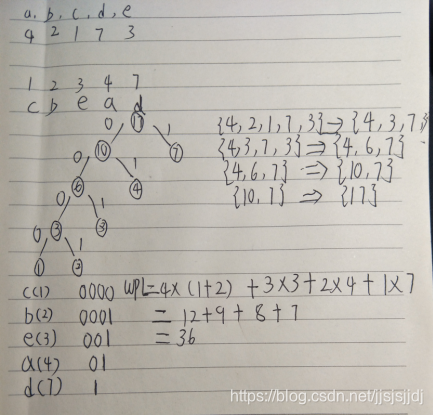 a, b, c, d, e
4 2 1 7 3
1 2 3 4 7
c b e a d
0 17 1
0 10 1 7
0 6 1 4
0 3 1 3
1 2
{4,2,1,7,3}⇒{4,3,7,3}
{4,3,7,3}⇒{4,6,7}
{4,6,7} ⇒{10,7}
{10,7} ⇒ {17}
c(1) 0000 WPL=4×(1+2) +3×3+2×4+1×7
b(2) 0001 =12+9+8+7
e(3) 001 =36
a(4) 01
d(7) 1
https://blog.csdn.net/jjsjsjjdj